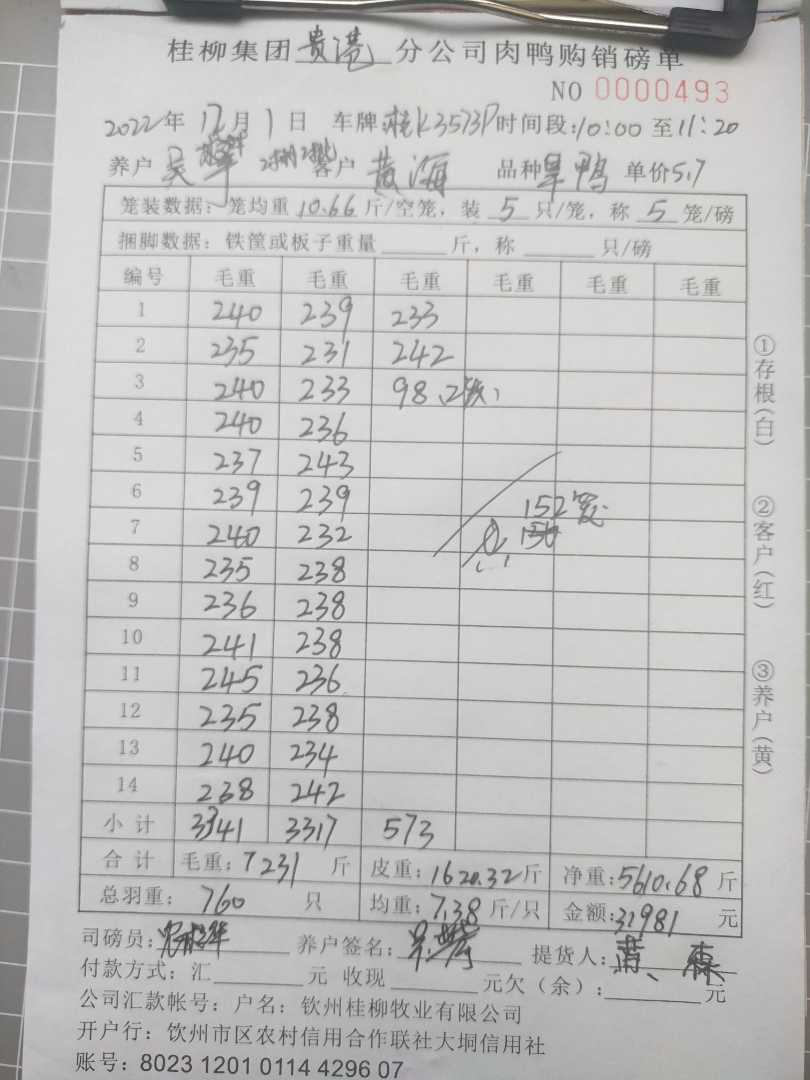 桂柳集团贵港分公司肉鸭购销磅单
NO 0000493
2022年12月1日 车牌桂K3573P时间段:10:00至11:20
养户 吴 客户 黄海 品种旱鸭 单价5.7
笼装数据：笼均重10.66斤/空笼，装5只/笼，称5笼/磅
捆脚数据：铁筐或板子重量 斤，称 只/磅
编号 毛重 毛重 毛重 毛重 毛重 毛重
1 240 239 233
2 235 231 242
3 240 233 98(2笼)
4 240 236
5 237 243
6 239 239 152笼
7 240 232
8 235 238
9 236 238
10 241 238
11 245 236
12 235 238
13 240 234
14 238 242
小计 3341 3317 573
合计 毛重：7231斤 皮重：1620.32斤 净重：5610.68斤
总羽重：760只 均重：7.38斤/只 金额：31981元
司磅员： 养户签名： 提货人：
付款方式：汇 元 收现 元欠（余）： 元
公司汇款帐号：户名：钦州桂柳牧业有限公司
开户行：钦州市区农村信用合作联社大垌信用社
账号：8023 1201 0114 4296 07
①存根(白) ②客户(红) ③养户(黄)